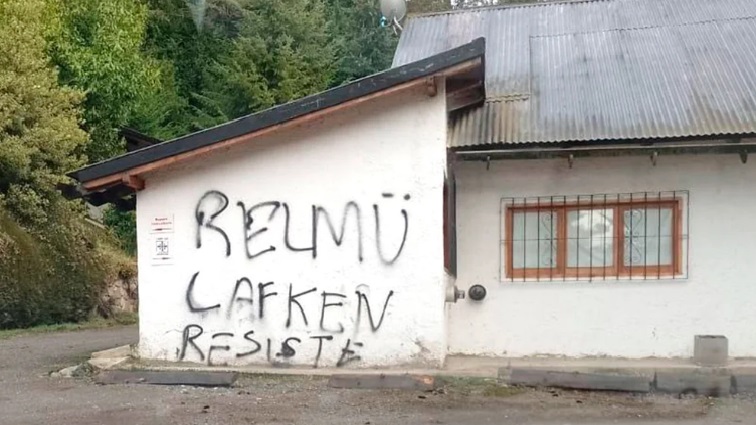 RELMÜ
LAFKEN
RESISTE